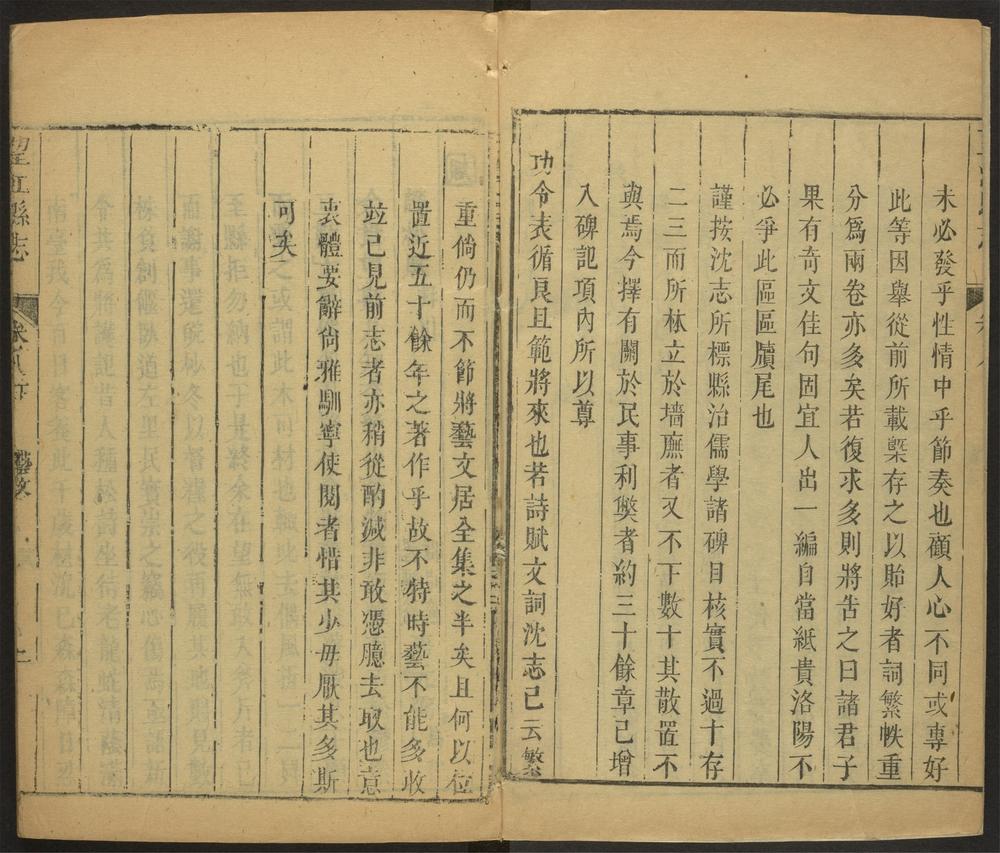 未必發乎性情中乎節奏也顧人心不同或專好
此等因舉從前所載槩存之以貽好者詞繁帙重
分爲兩卷亦多矣若復求多則將告之曰諸君子
果有奇文佳句固宜人出一編自當紙貴洛陽不
必爭此區區牘尾也
謹按沈志所標縣治儒學諸碑目核實不過十存
二三而所林立於墻廡者又不下數十其散置不
與焉今擇有關於民事利獘者約三十餘章已增
入碑記項內所以尊
功令表循良且範將來也若詩賦文詞沈志已云繁
重倘仍而不節將藝文居全集之半矣且何以位
置近五十餘年之著作乎故不特時藝不能多收
竝已見前志者亦稍從酌減非敢憑臆去取也意
衷體要辭尙雅馴寧使閱者惜其少毋厭其多斯
可矣
望江縣志
卷八
藝文